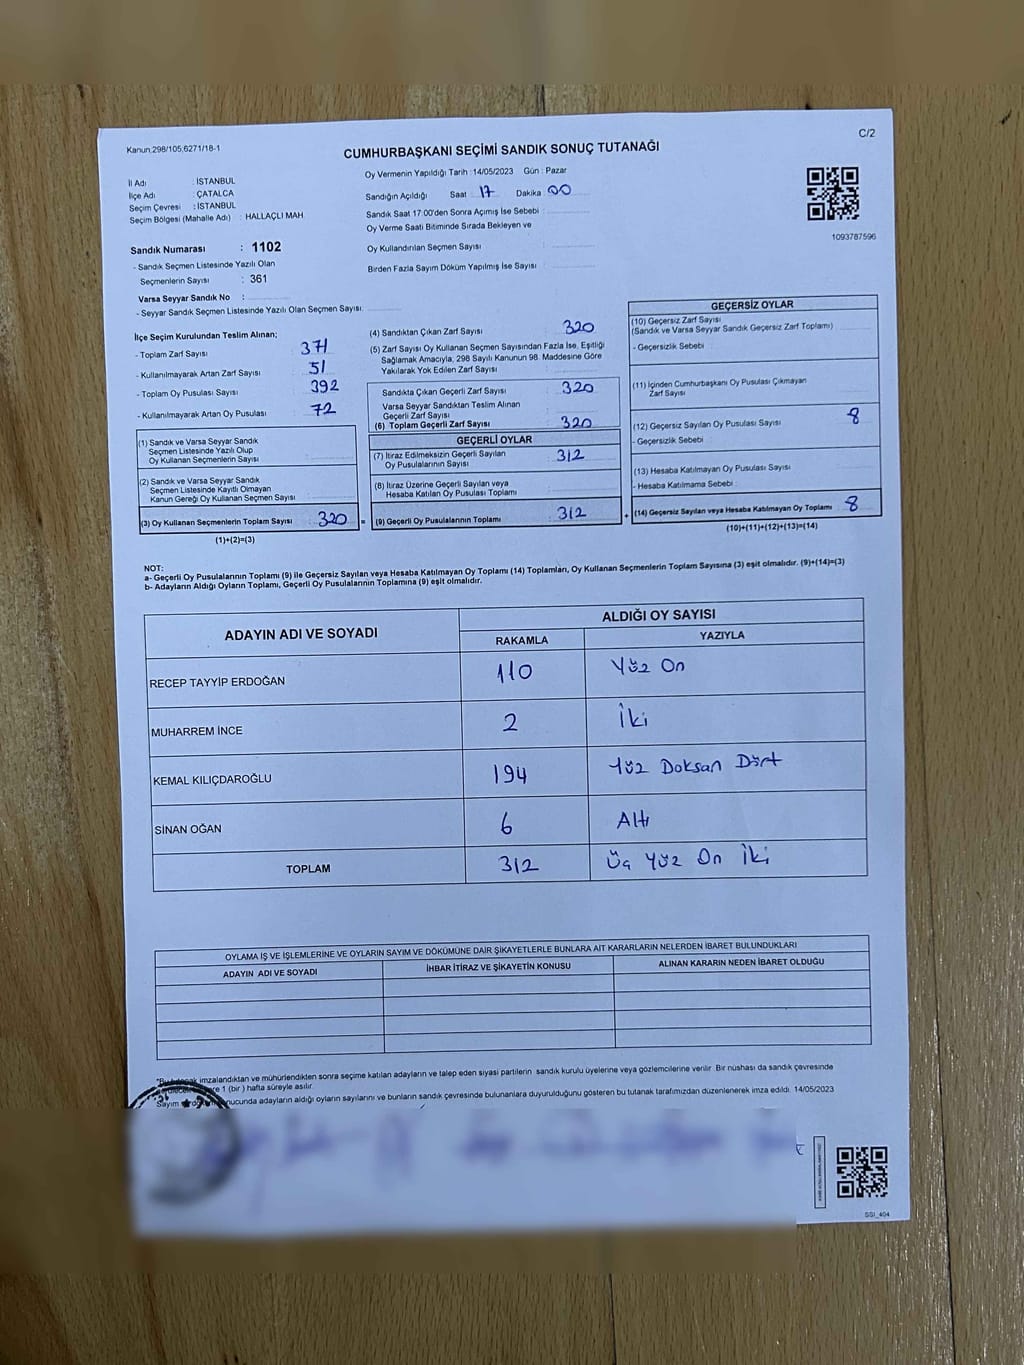 Kanun:298/105,6271/18-1
C/2
CUMHURBAŞKANI SEÇİMİ SANDIK SONUÇ TUTANAĞI
İl Adı : İSTANBUL
İlçe Adı : ÇATALCA
Seçim Çevresi : İSTANBUL
Seçim Bölgesi (Mahalle Adı) : HALLAÇLI MAH.
Oy Vermenin Yapıldığı Tarih :14/05/2023 Gün : Pazar
Sandığın Açıldığı Saat 17 Dakika 00
Sandık Saat 17:00'den Sonra Açımış İse Sebebi :
Oy Verme Saati Bitiminde Sırada Bekleyen ve
Oy Kullandırılan Seçmen Sayısı :
Birden Fazla Sayım Döküm Yapılmış İse Sayısı :
1093787596
Sandık Numarası : 1102
- Sandık Seçmen Listesinde Yazılı Olan
Seçmenlerin Sayısı : 361
Varsa Seyyar Sandık No :
- Seyyar Sandık Seçmen Listesinde Yazılı Olan Seçmen Sayısı:
İlçe Seçim Kurulundan Teslim Alınan;
- Toplam Zarf Sayısı : 371
- Kullanılmayarak Artan Zarf Sayısı : 51
- Toplam Oy Pusulası Sayısı : 392
- Kullanılmayarak Artan Oy Pusulası : 72
(1) Sandık ve Varsa Seyyar Sandık
Seçmen Listesinde Yazılı Olup
Oy Kullanan Seçmenlerin Sayısı :
(2) Sandık ve Varsa Seyyar Sandık
Seçmen Listesinde Kayıtlı Olmayan
Kanun Gereği Oy Kullanan Seçmen Sayısı :
(3) Oy Kullanan Seçmenlerin Toplam Sayısı : 320 =
(1)+(2)=(3)
(4) Sandıktan Çıkan Zarf Sayısı : 320
(5) Zarf Sayısı Oy Kullanan Seçmen Sayısından Fazla İse, Eşitliği
Sağlamak Amacıyla, 298 Sayılı Kanunun 98. Maddesine Göre
Yakılarak Yok Edilen Zarf Sayısı :
Sandıkta Çıkan Geçerli Zarf Sayısı : 320
Varsa Seyyar Sandıktan Teslim Alınan
Geçerli Zarf Sayısı :
(6) Toplam Geçerli Zarf Sayısı : 320
GEÇERLİ OYLAR
(7) İtiraz Edilmeksizin Geçerli Sayılan
Oy Pusulalarının Sayısı : 312
(8) İtiraz Üzerine Geçerli Sayılan veya
Hesaba Katılan Oy Pusulası Toplamı :
(9) Geçerli Oy Pusulalarının Toplamı : 312 +
GEÇERSİZ OYLAR
(10) Geçersiz Zarf Sayısı
(Sandık ve Varsa Seyyar Sandık Geçersiz Zarf Toplamı) :
- Geçersizlik Sebebi :
(11) İçinden Cumhurbaşkanı Oy Pusulası Çıkmayan
Zarf Sayısı :
(12) Geçersiz Sayılan Oy Pusulası Sayısı : 8
- Geçersizlik Sebebi :
(13) Hesaba Katılmayan Oy Pusulası Sayısı :
- Hesaba Katılmama Sebebi :
(14) Geçersiz Sayılan veya Hesaba Katılmayan Oy Toplamı : 8
(10)+(11)+(12)+(13)=(14)
NOT:
a- Geçerli Oy Pusulalarının Toplamı (9) ile Geçersiz Sayılan veya Hesaba Katılmayan Oy Toplamı (14) Toplamları, Oy Kullanan Seçmenlerin Toplam Sayısına (3) eşit olmalıdır. (9)+(14)=(3)
b- Adayların Aldığı Oyların Toplamı, Geçerli Oy Pusulalarının Toplamına (9) eşit olmalıdır.
ADAYIN ADI VE SOYADI
ALDIĞI OY SAYISI
RAKAMLA YAZIYLA
RECEP TAYYİP ERDOĞAN 110 Yüz On
MUHARREM İNCE 2 İki
KEMAL KILIÇDAROĞLU 194 Yüz Doksan Dört
SİNAN OĞAN 6 Altı
TOPLAM 312 Üç Yüz On İki
OYLAMA İŞ VE İŞLEMLERİNE VE OYLARIN SAYIM VE DÖKÜMÜNE DAİR ŞİKAYETLERLE BUNLARA AİT KARARLARIN NELERDEN İBARET BULUNDUKLARI
ADAYIN ADI VE SOYADI İHBAR İTİRAZ VE ŞİKAYETİN KONUSU ALINAN KARARIN NEDEN İBARET OLDUĞU
imzalandıktan ve mühürlendikten sonra seçime katılan adayların ve talep eden siyasi partilerin sandık kurulu üyelerine veya gözlemcilerine verilir. Bir nüshası da sandık çevresinde
1 (bir ) hafta süreyle asılır.
Sayım adayların aldığı oyların sayılarını ve bunların sandık çevresinde bulunanlara duyurulduğunu gösteren bu tutanak tarafımızdan düzenlenerek imza edildi. 14/05/2023
SSI_404